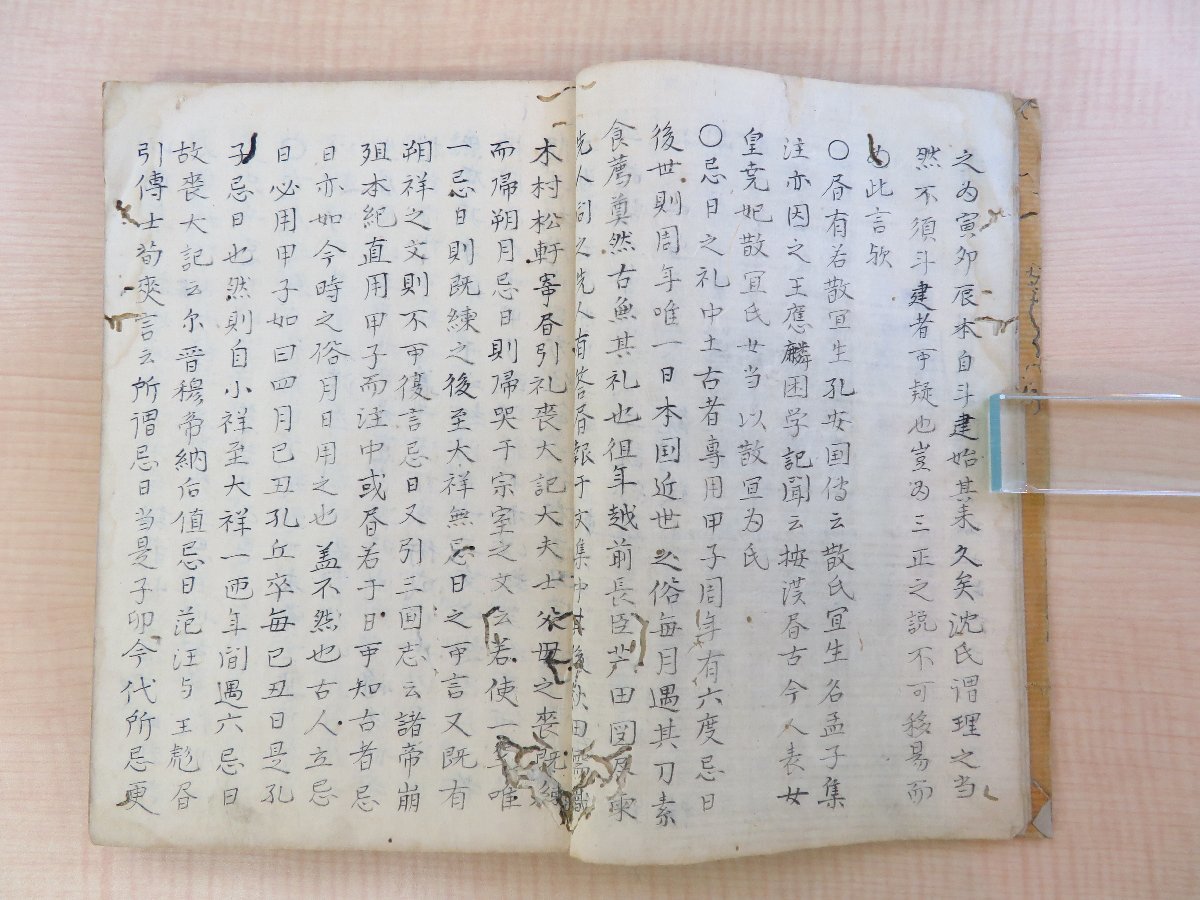 之为寅卯辰本自斗建始其来久矣沈氏谓理之当
然不須斗建者可疑也豈为三正之説不可移易而
为此言欤
〇昏有若散宜生孔安国傳云散氏宜生名孟子集
注亦因之王應麟困学記聞云按漢昏古今人表女
皇堯妃散宜氏女当以散宜为氏
〇忌日之礼中土古者專用甲子周年有六度忌日
後世則周年唯一日本国近世之俗每月遇其刀素
食薦奠然古無其礼也徂年越前長臣芦田図
先人有答昏報于文集中其後
木村松軒寄昏引礼喪大記大夫士父母之喪既練
而帰朔月忌日則帰哭于宗室之文云若使一唯
一忌日則既練之後至大祥無忌日之可言又既有
朔祥之文則不可復言忌日又引三国志云諸帝崩
殂本紀直用甲子而注中或昏若于日可知古者忌
日亦如今時之俗月日用之也盖不然也古人立忌
日必用甲子如曰四月已丑孔丘卒每已丑日是孔
子忌日也然則自小祥至大祥一匝年间遇六忌日
故喪大記云尔晋穆帝納后值忌日范汪与王彪昏
引傳士荀奭言云所谓忌日当是子卯今代所忌更